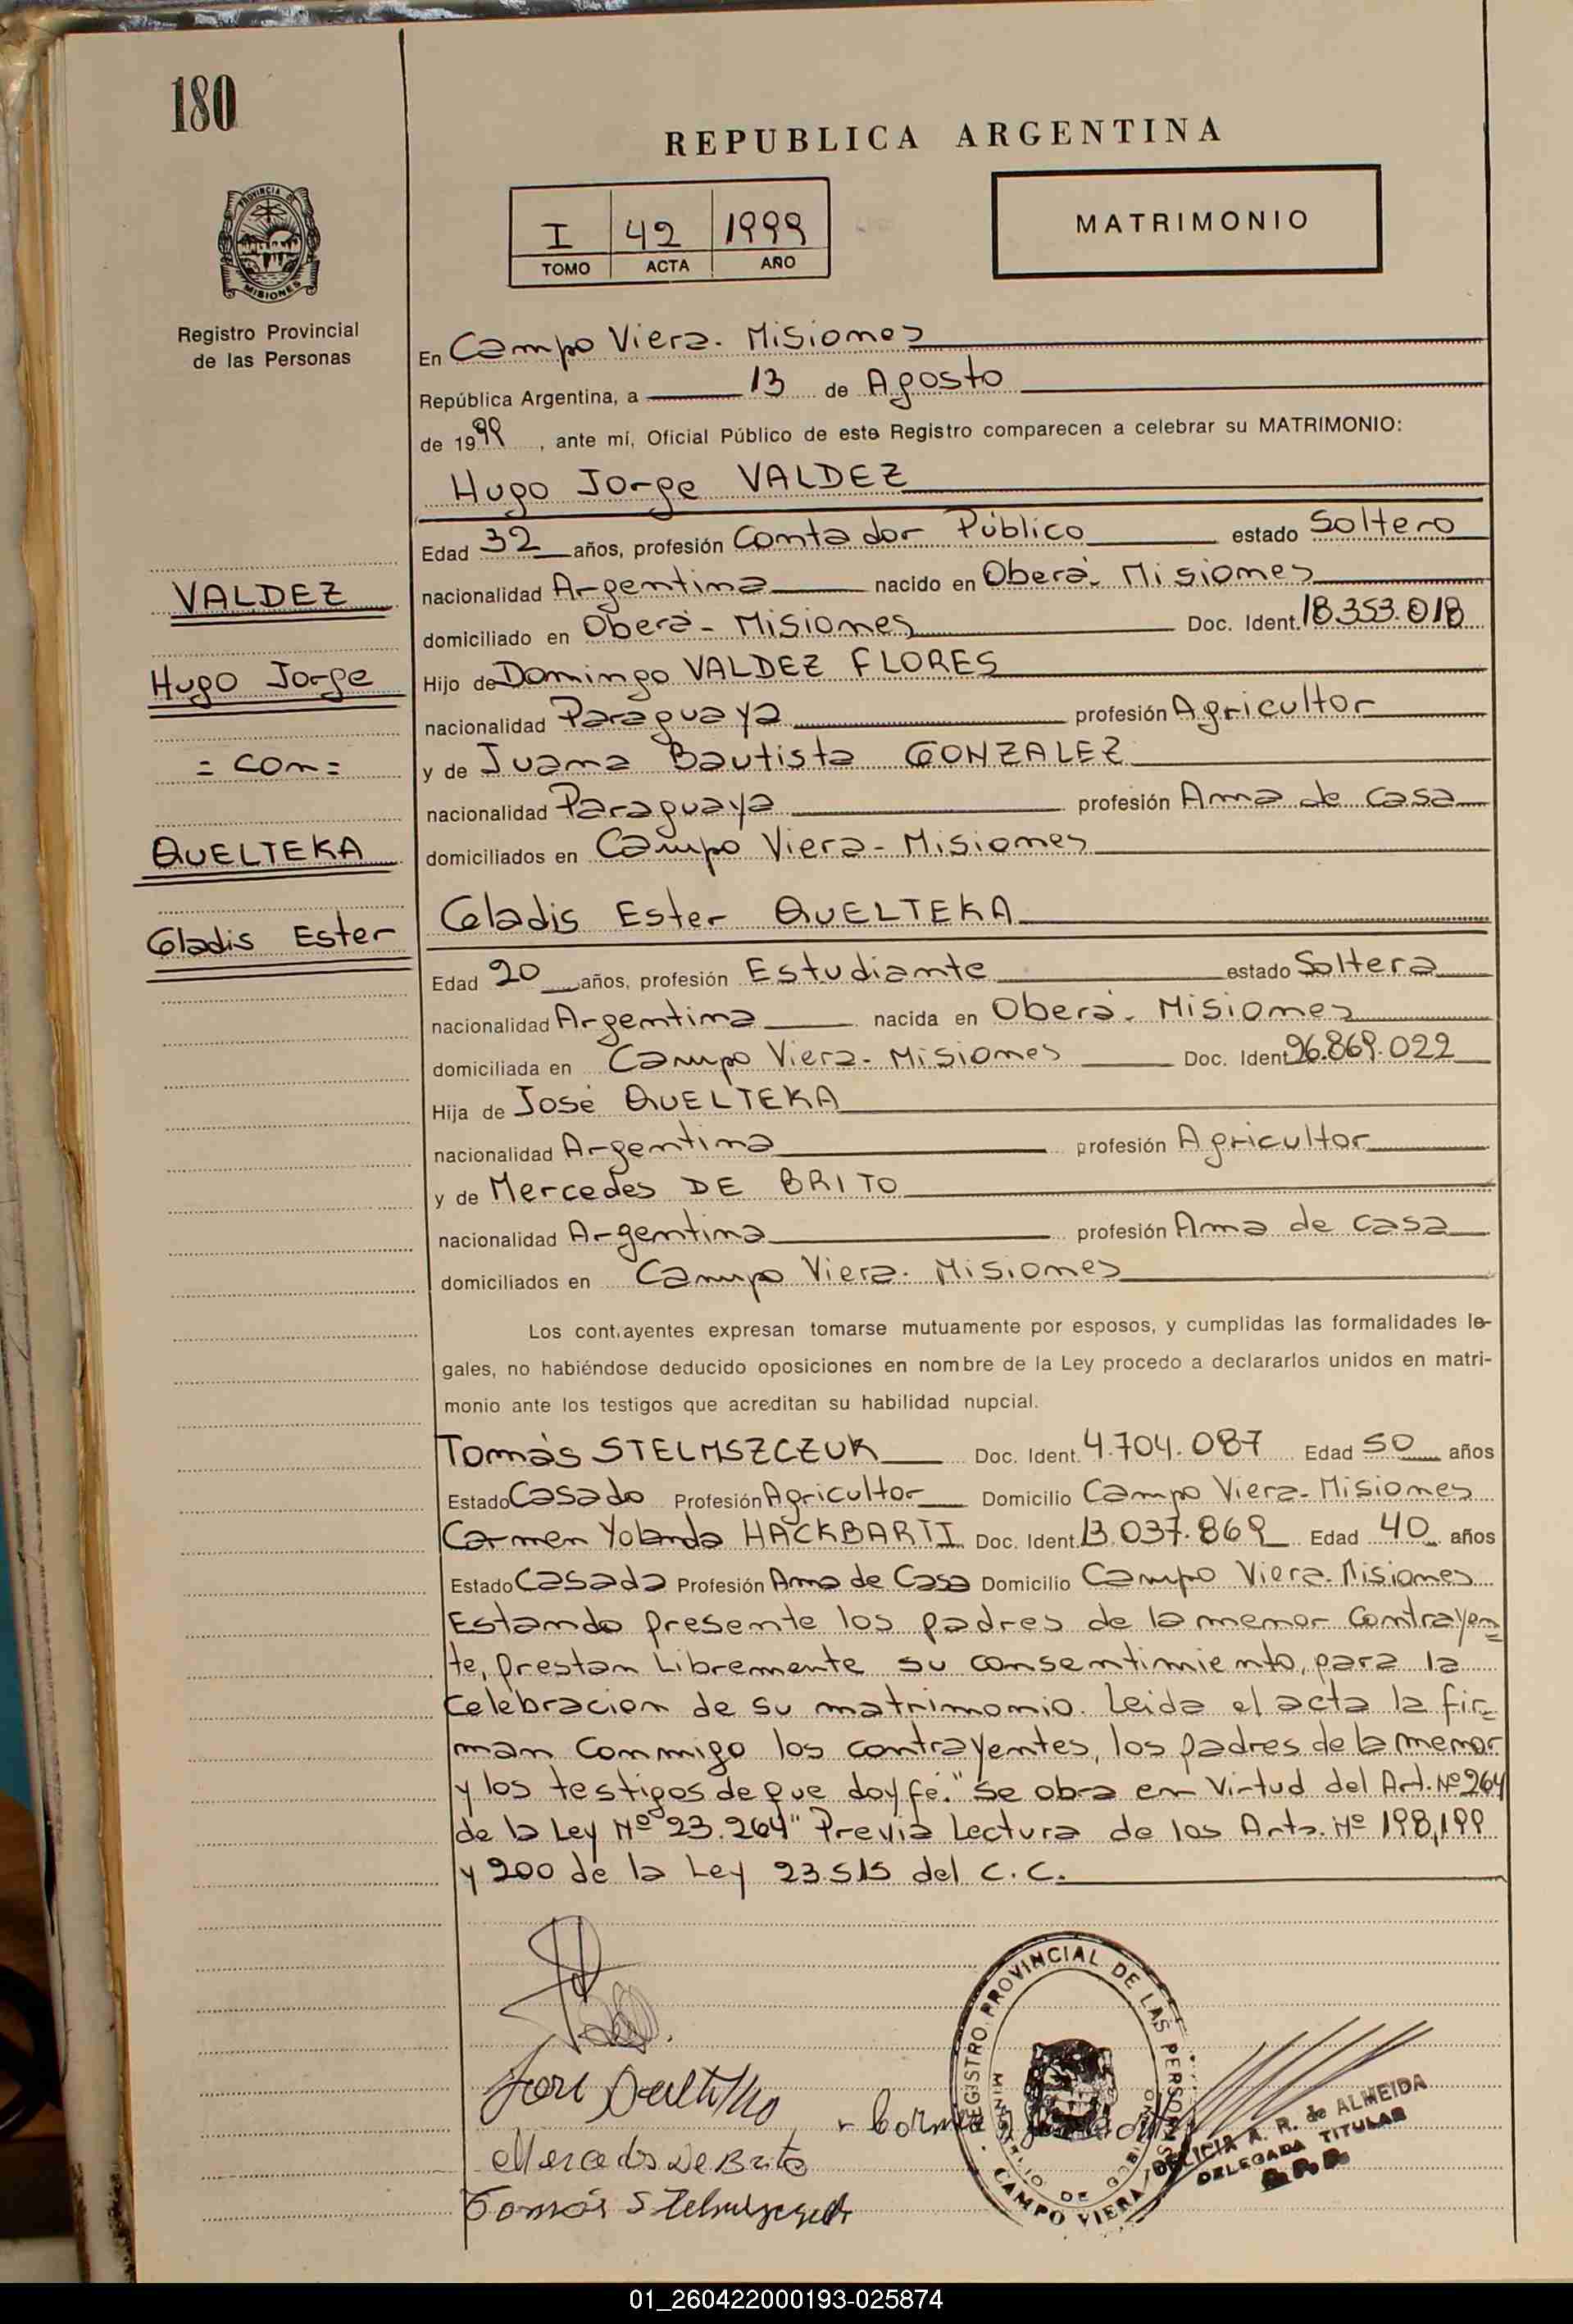 180
REPUBLICA ARGENTINA
PROVINCIA DE
MISIONES
Registro Provincial
de las Personas
I 42 1999
TOMO ACTA AÑO
MATRIMONIO
En Campo Viera. Misiones
República Argentina, a 13 de Agosto
de 1999, ante mí, Oficial Público de este Registro comparecen a celebrar su MATRIMONIO:
Hugo Jorge VALDEZ
Edad 32 años, profesión Contador Público estado Soltero
nacionalidad Argentina nacido en Oberá. Misiones
domiciliado en Oberá - Misiones Doc. Ident. 18.353.018
Hijo de Domingo VALDEZ FLORES
nacionalidad Paraguaya profesión Agricultor
y de Juana Bautista GONZALEZ
nacionalidad Paraguaya profesión Ama de casa
domiciliados en Campo Viera - Misiones
VALDEZ
Hugo Jorge
= con =
QUELTEKA
Gladis Ester
Gladis Ester QUELTEKA
Edad 20 años, profesión Estudiante estado Soltera
nacionalidad Argentina nacida en Oberá. Misiones
domiciliada en Campo Viera - Misiones Doc. Ident 26.869.022
Hija de José QUELTEKA
nacionalidad Argentina profesión Agricultor
y de Mercedes DE BRITO
nacionalidad Argentina profesión Ama de casa
domiciliados en Campo Viera. Misiones
Los contrayentes expresan tomarse mutuamente por esposos, y cumplidas las formalidades le-
gales, no habiéndose deducido oposiciones en nombre de la Ley procedo a declararlos unidos en matri-
monio ante los testigos que acreditan su habilidad nupcial.
Tomás STELMSZCZUK Doc. Ident. 4.704.087 Edad 50 años
Estado Casado Profesión Agricultor Domicilio Campo Viera - Misiones
Carmen Yolanda HACKBARTT Doc. Ident. 13.037.869 Edad 40 años
Estado Casada Profesión Ama de Casa Domicilio Campo Viera. Misiones
Estando presente los padres de la menor contrayen=
te, prestan Libremente su consentimiento, para la
celebracion de su matrimonio. Leida el acta la fir=
man conmigo los contrayentes, los padres de la menor
y los testigos de que doy fé. "Se obra en Virtud del Art. Nº 264
de la Ley Nº 23.264" Previa Lectura de los Arts. Nº 198, 199
y 200 de la Ley 23.515 del C.C.
Mercedes De Brito
Tomás
REGISTRO PROVINCIAL DE LAS PERSONAS
MINISTERIO DE GOBIERNO
CAMPO VIERA
DELICIA A. R. de ALMEIDA
DELEGADA TITULAR
R.P.P.
01_260422000193-025874